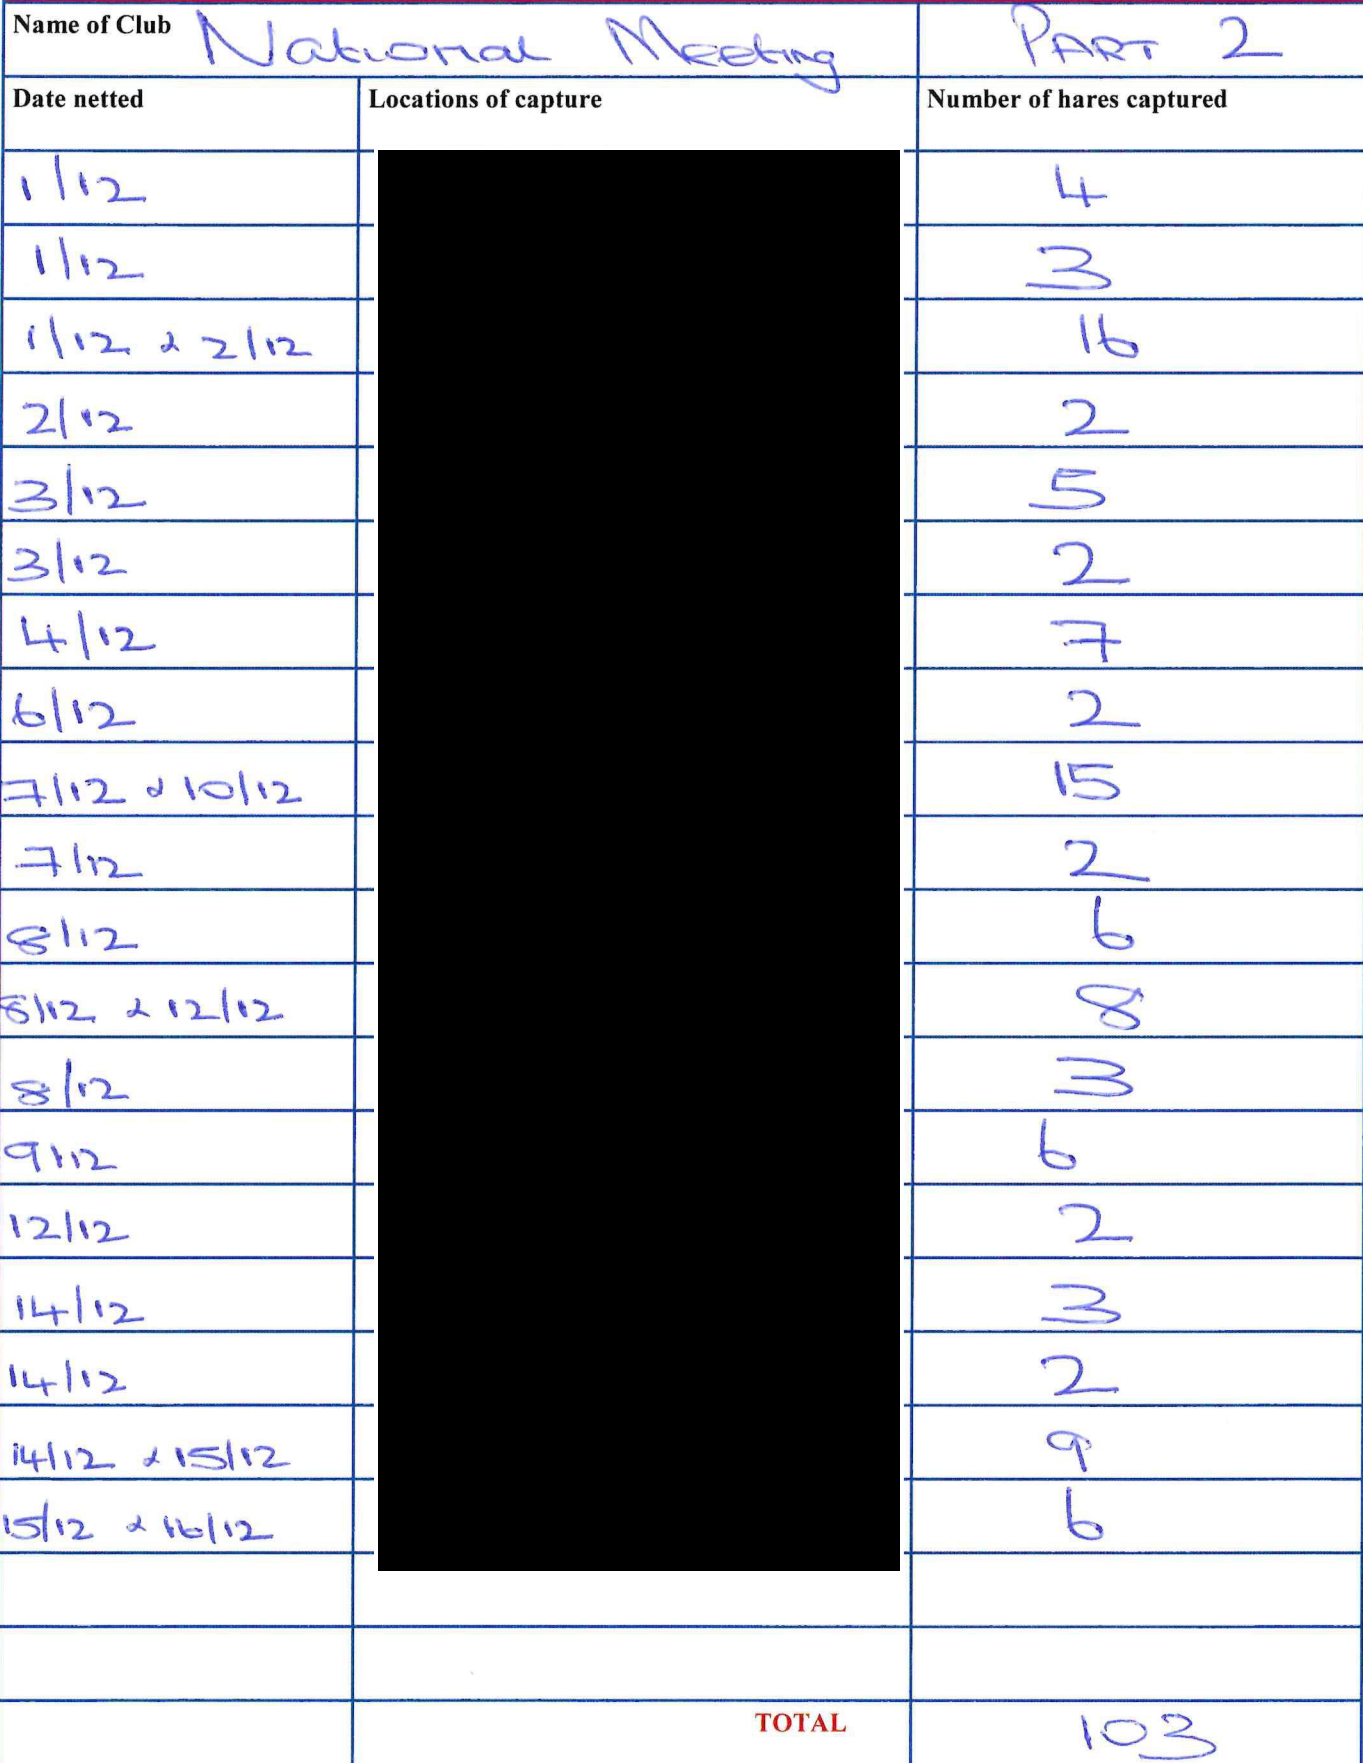 Name of Club National Meeting PART 2
Date netted Locations of capture Number of hares captured
1/12 4
1/12 3
1/12 & 2/12 16
2/12 2
3/12 5
3/12 2
4/12 7
6/12 2
7/12 & 10/12 15
7/12 2
8/12 6
8/12 & 12/12 8
8/12 3
9/12 6
12/12 2
14/12 3
14/12 2
14/12 & 15/12 9
15/12 & 16/12 6
TOTAL 103